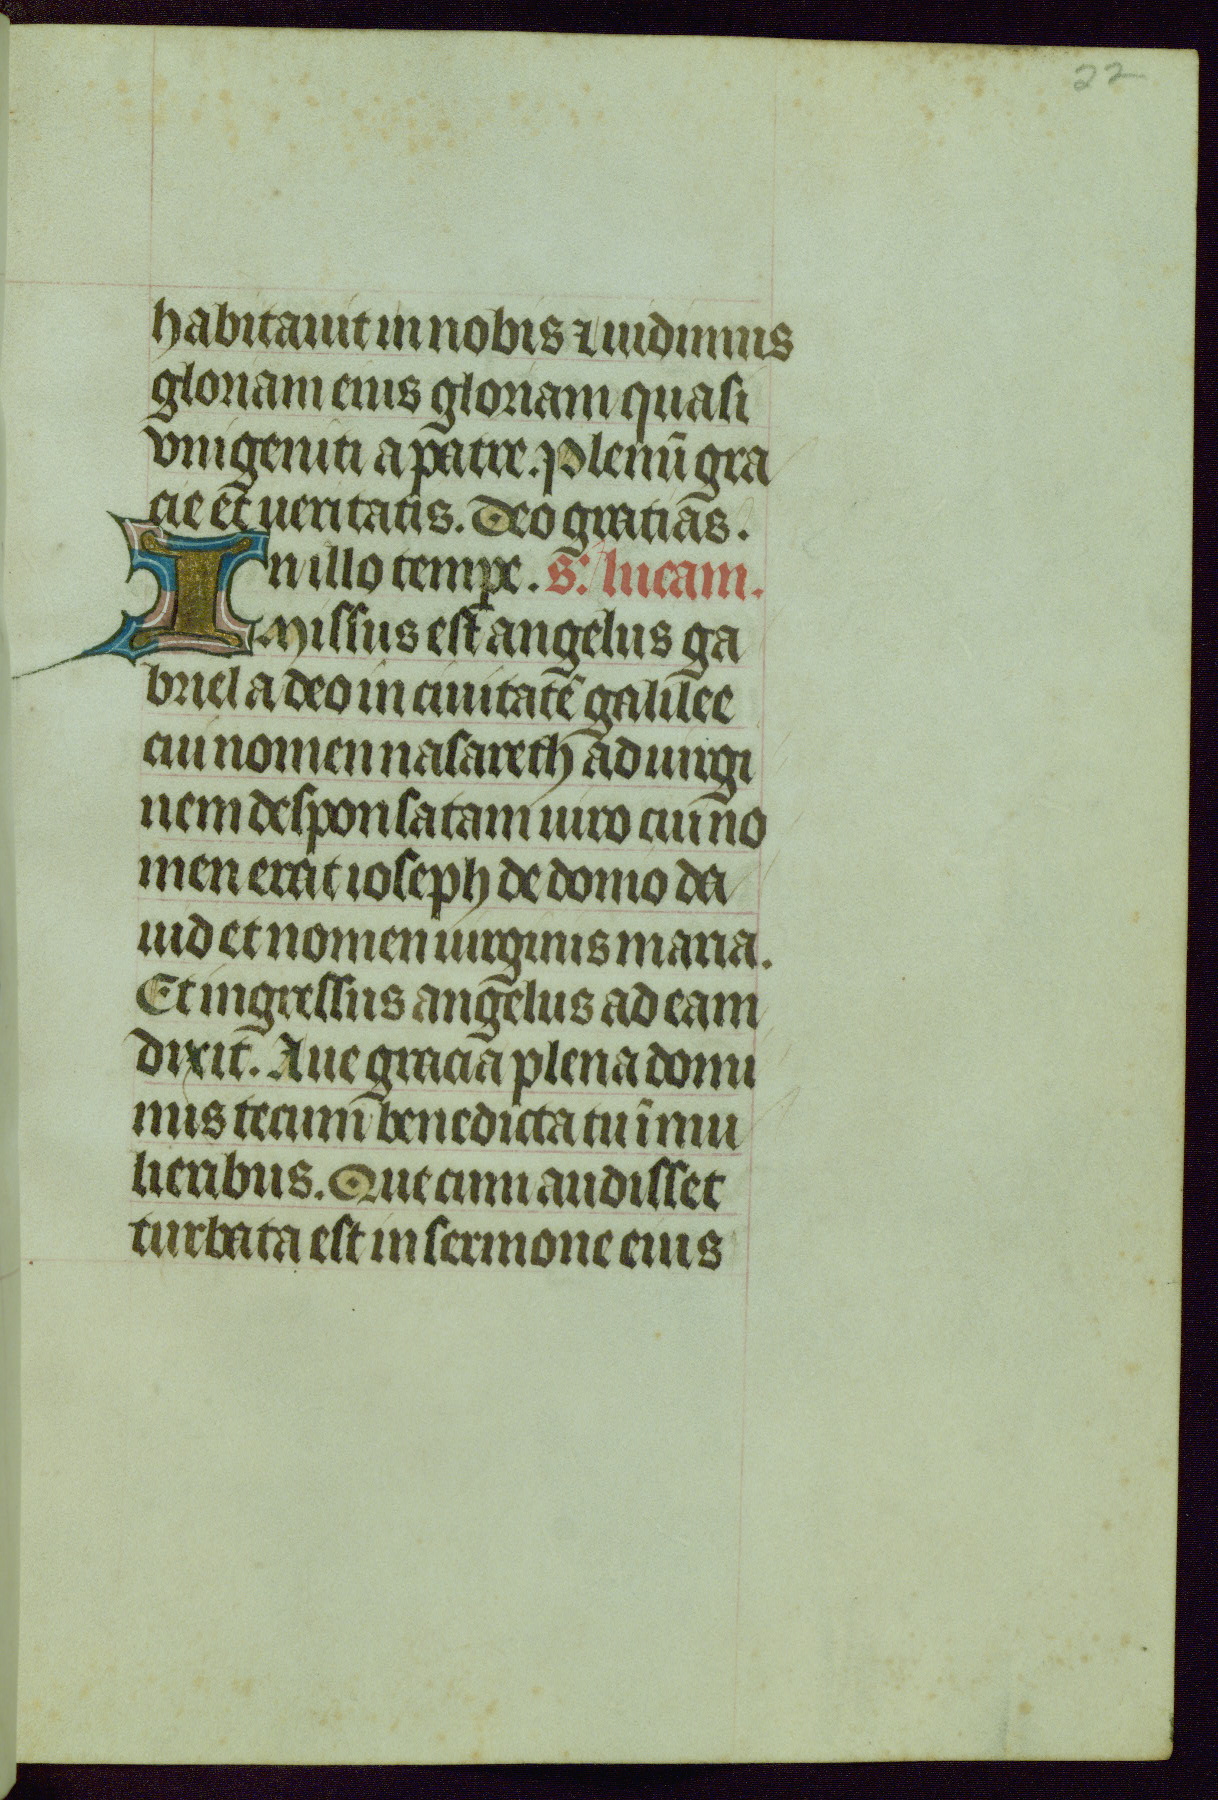 22
habitauit in nobis ⁊ uidimus
gloriam eius gloriam quasi
vnigeniti a patre. Plenū gra
cie et ueritatis. Deo gratias.
In illo tempe. S: lucam.
Missus est angelus ga
briel a deo in ciuitatē galilee
cui nomen nasareth ad uirgi
nem desponsatam uiro cui no
men erat ioseph de domo da
uid et nomen uirginis maria.
Et ingressus angelus ad eam
dixit. Aue gracia plena domi
nus tecum benedicta tu ī mu
lieribus. Que cum audisset
turbata est in sermone eius